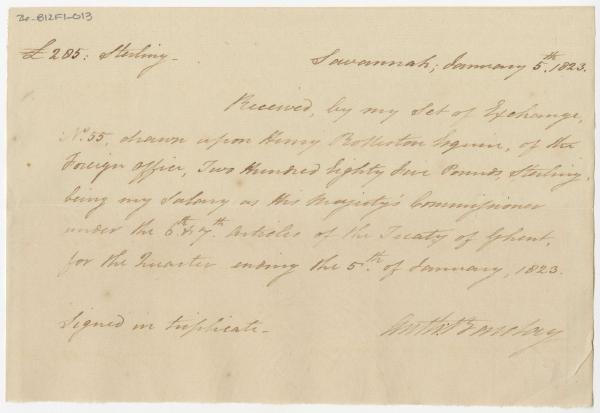 20-B12F1-013
£285: Sterling_
Savannah; January 5th. 1823.
Received, by my Set of Exchange,
No. 55, drawn upon Henry Rolleston Esquire, of the
Foreign Office, Two Hundred Eighty five Pounds, Sterling,
being my Salary as His Majesty's Commissioner
under the 6th. & 7th. Articles of the Treaty of Ghent,
for the Quarter ending the 5th. of January, 1823.
Signed in triplicate_
Anth: Barclay